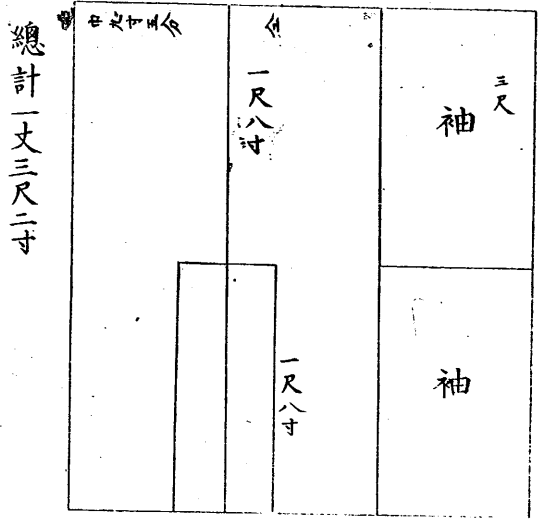 三尺
袖
袖
仝
一尺八寸
一尺八寸
巾九寸五分
總計一丈三尺二寸